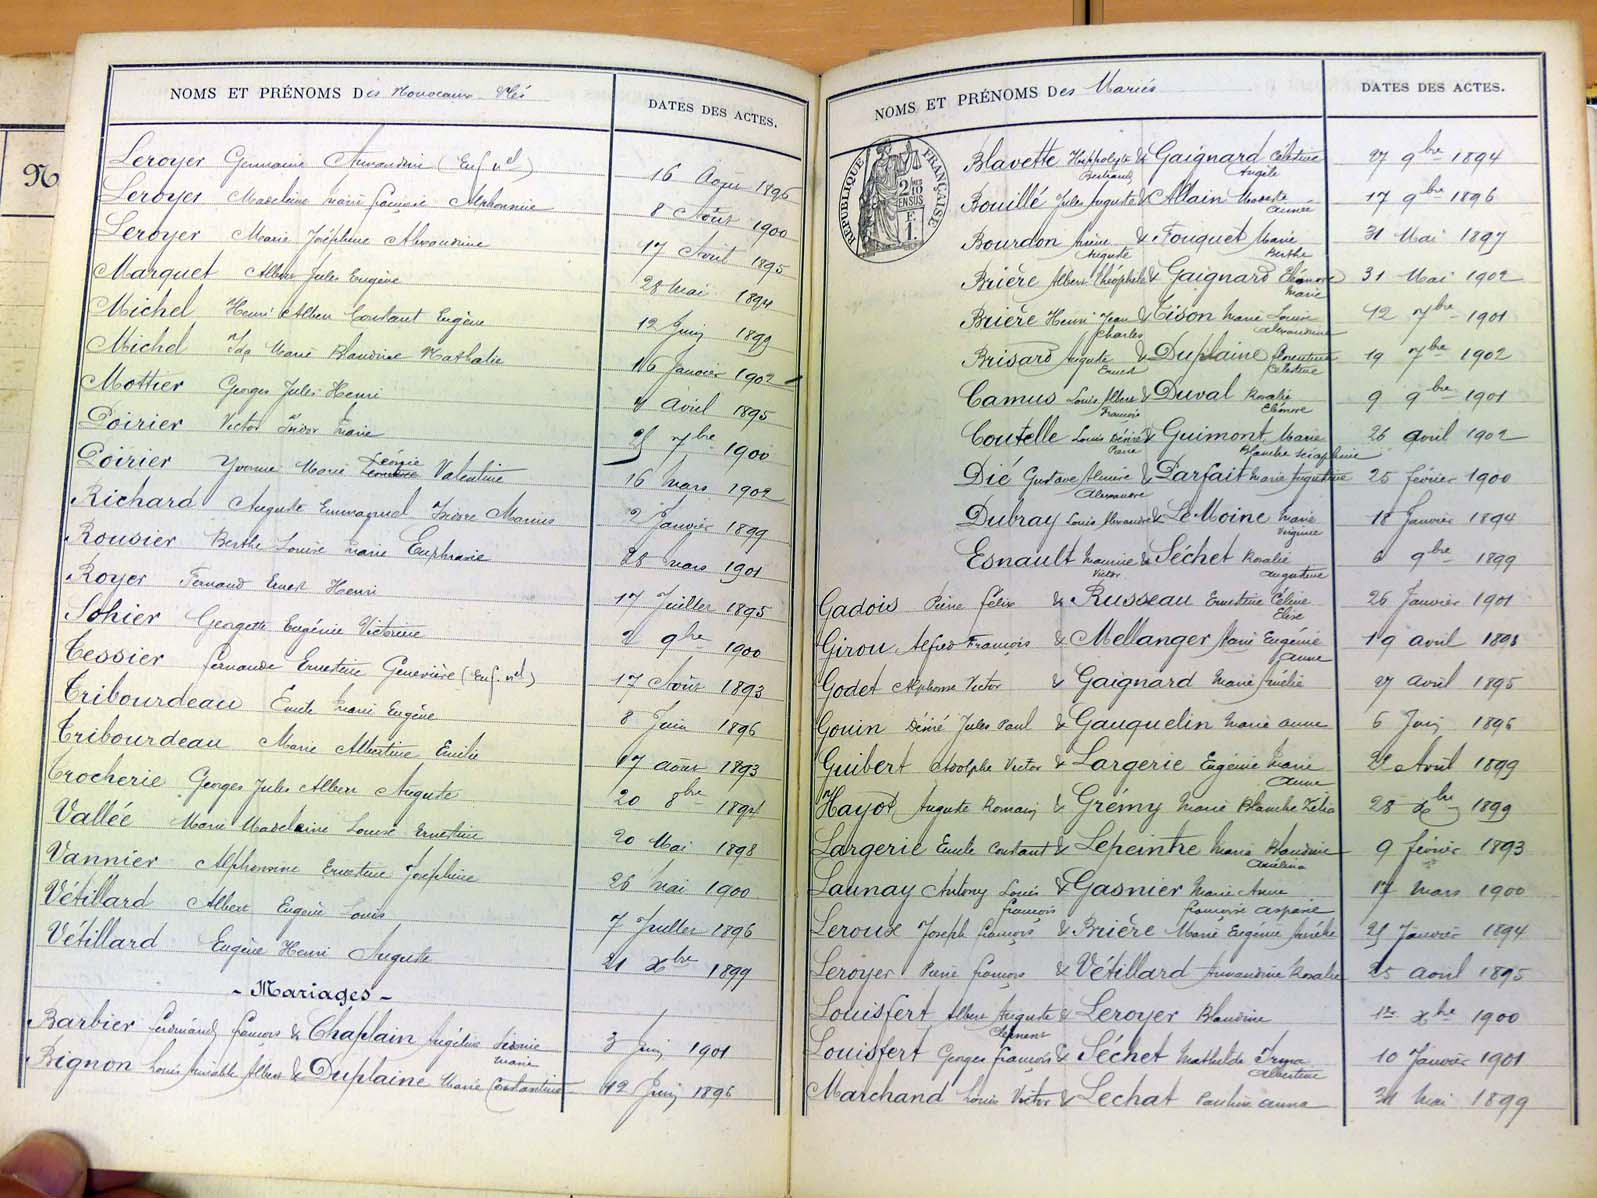 NOMS ET PRÉNOMS Des Nouveaux Nés
DATES DES ACTES.
Leroyer Germaine Amandine (Enf. nel)
16 Août 1896
Leroyer Madeleine Marie françoise Alphonsine
8 Août 1900
Leroyer Marie Joséphine Alexandrine
17 Avril 1895
Marquet Albert Jules Eugène
28 Mai 1894
Michel Henri Albert Constant Eugène
12 Juin 1899
Michel Marie Blandine Nathalie
16 Janvier 1902
Mottier Georges Jules Henri
4 Avril 1895
Poirier Victor Isidor Marie
25 7bre 1900
Poirier Yvonne Marie Léonie Valentine
16 Mars 1902
Richard Auguste Emmanuel Isidore Marius
2 Janvier 1899
Rousier Berthe Louise Marie Euphrasie
28 mars 1901
Royer Fernand Ernest Henri
17 Juillet 1895
Sohier Georgette Eugénie Victorine
2 9bre 1900
Tessier fernande Ernestine Geneviève (Enf. nel)
17 Août 1893
Tribourdeau Emile Marie Eugène
8 Juin 1896
Tribourdeau Marie Albertine Emilie
17 août 1893
Trocherie Georges Jules Albert Auguste
20 8bre 1894
Vallée Marie Madeleine Louise Ernestine
20 Mai 1898
Vannier Alphonsine Ernestine Joséphine
26 Mai 1900
Vétillard Albert Eugène Louis
7 Juillet 1896
Vétillard Eugène Henri Auguste
21 Xbre 1899
- Mariages -
Barbier ferdinand françois & Chaplain Angéline Sidonie Marie
3 Juin 1901
Bignon Louis Aimable Albert & Duplaine Marie Constantine
12 Juin 1896
NOMS ET PRÉNOMS Des Mariés
DATES DES ACTES.
RÉPUBLIQUE FRANÇAISE
2/10 EN SUS
F. 1.
Blavette Hippolyte Bertrand & Gaignard Célestine Angèle
27 9bre 1894
Bouillé Jules Auguste & Allain Modeste Aimée
17 9bre 1896
Bourdon Auguste & Fouquet Marie Berthe
31 Mai 1897
Brière Albert Théophile & Gaignard Eléonore Marie
31 Mai 1902
Brière Henri Jean Charles & Tison Marie Louise Alexandrine
12 7bre 1901
Brisard Auguste Ernest & Duplaine florentine Célestine
19 7bre 1902
Camus Louis Albert François & Duval Rosalie Eléonore
9 9bre 1901
Coutelle Louis Désiré & Guimont Marie Blanche Séraphine
26 avril 1902
Dié Gustave Alexandre & Parfait Marie Augustine
25 février 1900
Dubray Louis Alexandre & Le Moine Marie Virginie
18 Janvier 1894
Esnault Maurice Victor & Séchet Rosalie Augustine
9bre 1899
Gadois Pierre félix & Russeau Ernestine Céline Elise
26 Janvier 1901
Girou Alfred François & Mellanger Marie Eugénie Anne
19 avril 1898
Godet Alphonse Victor & Gaignard Marie Amélie
27 avril 1895
Gouin Désiré Jules Paul & Gauquelin Marie Anne
6 Juin 1896
Guibert Adolphe Victor & Largerie Eugénie Marie Anne
22 Avril 1899
Hayot Auguste Romain & Grémy Marie Blanche Zélia
28 Xbre 1899
Largerie Emile Constant & Lepeintre Marie Blandine Azélina
9 février 1893
Launay Antony Louis françois & Gasnier Marie Anne françoise Aspasie
17 Mars 1900
Leroux Joseph françois & Brière Marie Eugénie Amélie
25 Janvier 1894
Leroyer Pierre françois & Vétillard Amandine Rosalie
25 avril 1895
Louisfert Albert Auguste Clément & Leroyer Blandine
1er Xbre 1900
Louisfert Georges françois & Séchet Mathilde Irma Albertine
10 Janvier 1901
Marchand Louis Victor & Lechat Pauline Anna
31 Mai 1899